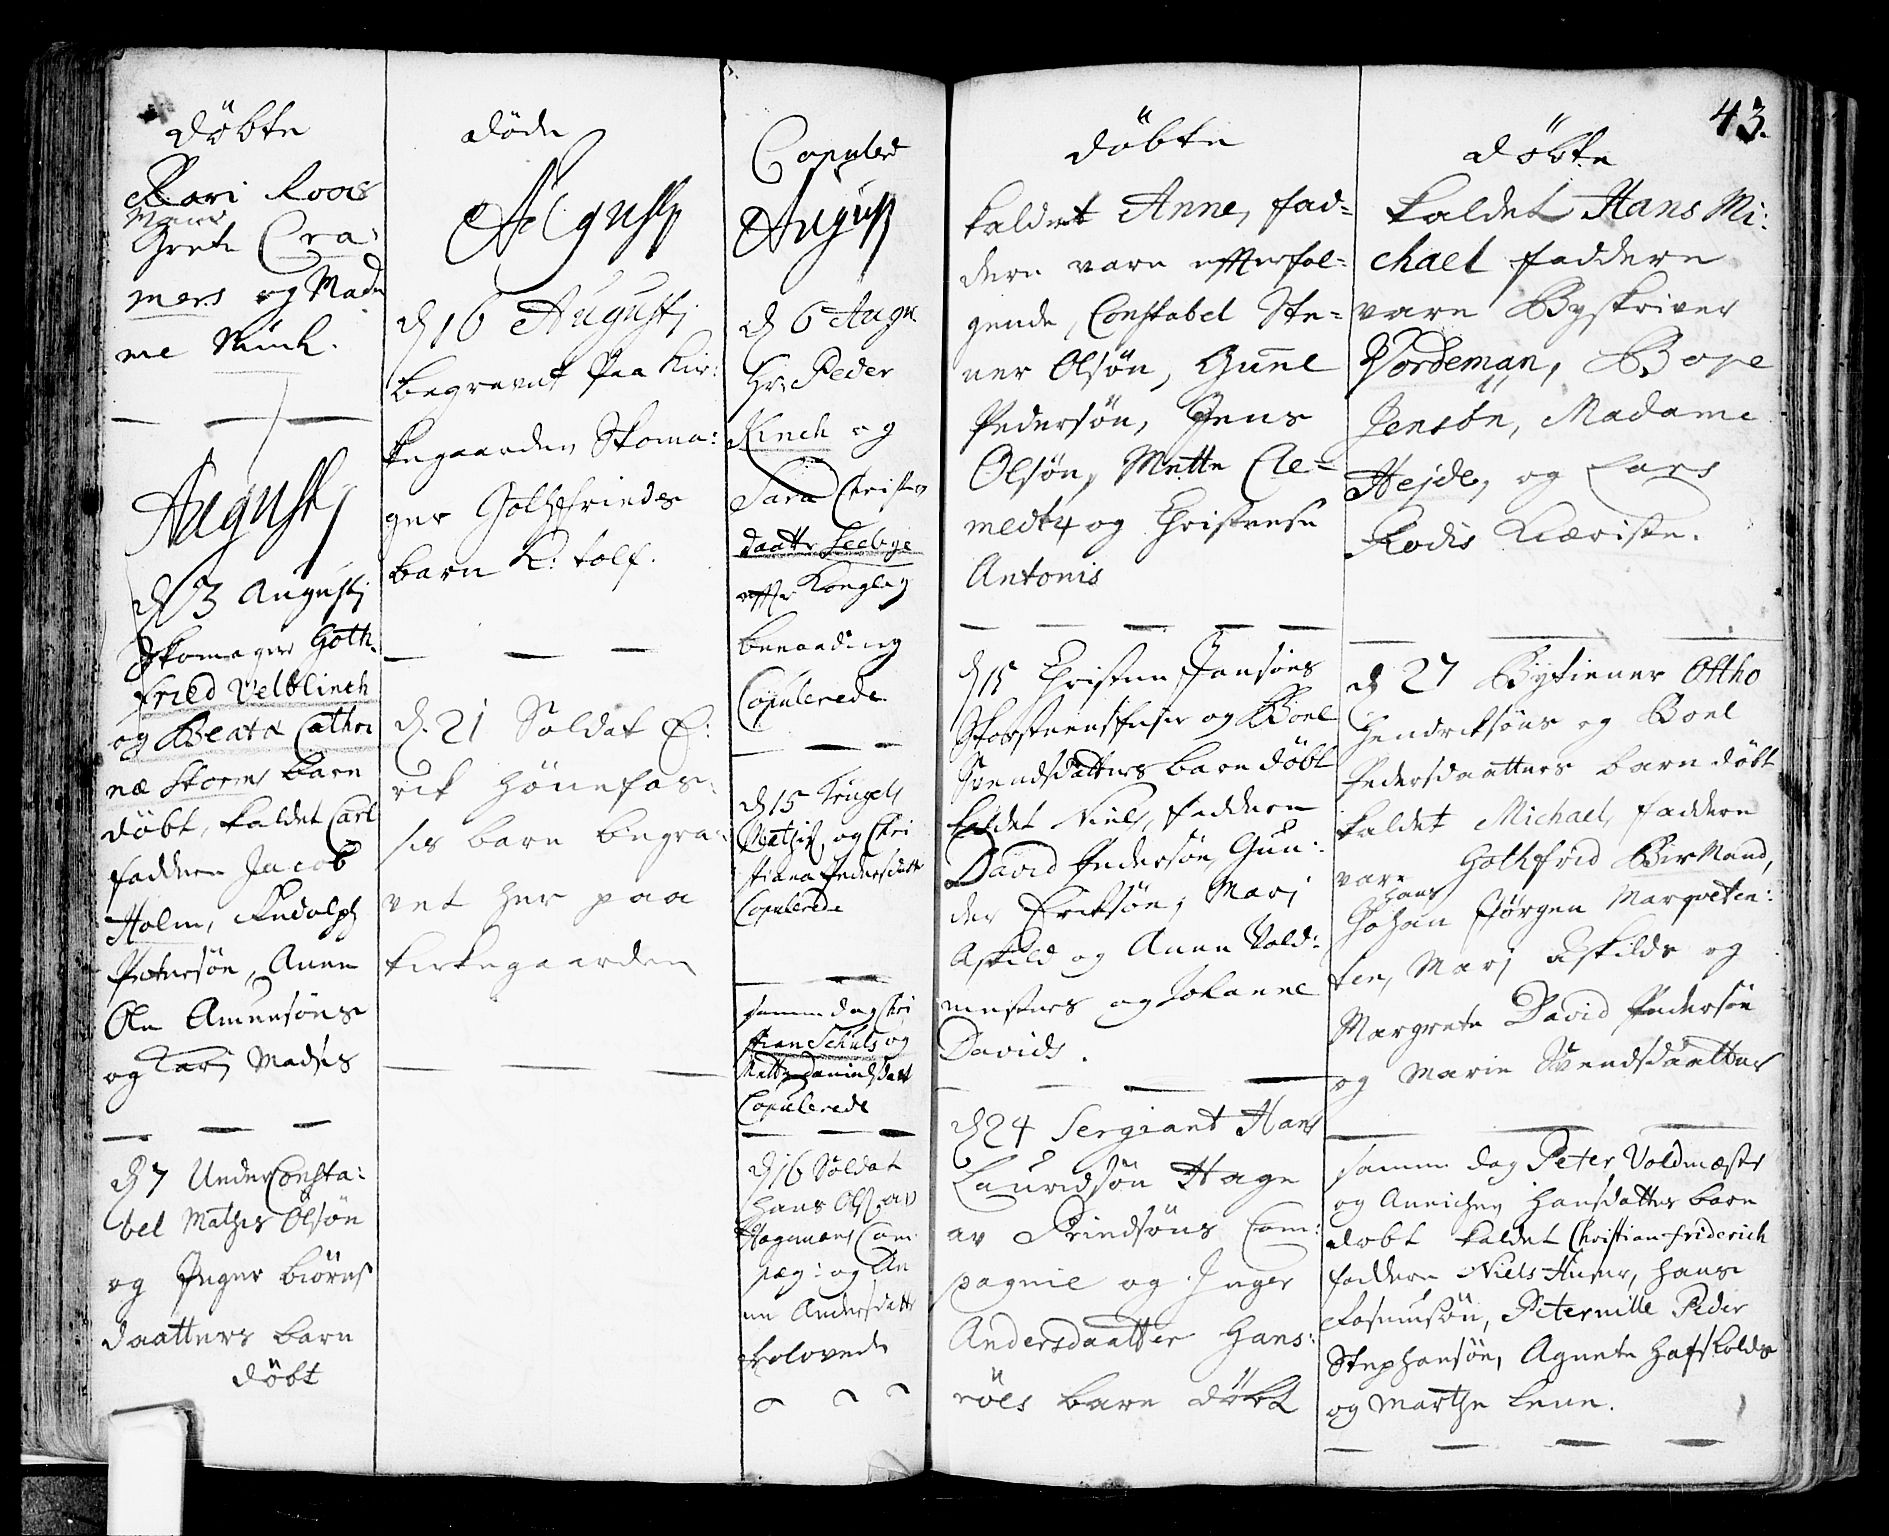 döbte
Kari Roos
Mans
Grete Cra:
mers og Mada
me Münk.
Augustj
d 3 Augustj
Skomager Goth
fried Velblinch
og Beata Cathri
næ Storms barn
döbt, kaldet Carl
faddere Jacob
Holm, Rudolph
Petersön, Anne
Ole Amunsöns
og Karj Madses
d 7 UnderConsta:
bel Mathis Olsön
og Inger biörns
daatters barn
döbt
döde
Augustj
d 16 Augustj
begravet paa Kir:
kegaarden Skoma:
ger Gothfrieds
barn
d. 21 Soldat E:
rik Hönefos:
ses barn begra:
vet her paa
kirkegaarden
Copulered
August
d 6 Aug
Hr: Peder
Kinch og
Sara Christens
daatter Seebye
effter Konglig
benaading
Copulerede
d 15
Mathis, og Chri
stiana Pedersdatter
Copulerede
samme dag Chri
stian Schults og
Mette Danielsdatt
Copulerede
d 16 Soldat
Hans Ols: av
Hagemans Com
pag: og An
ne Andersdatter
trolovede
döbte
kaldet Anne, fad=
dere vare effterfol=
gende, Constabel Ste=
ner Olsön, Gunel
Pedersön, Jens
Olsön, Mette Cle=
medtz og Christense
Antonis
d 15 Christen Jansöns
og Boel
Svendsdatters barn döbt
kaldet Niels, faddere
David Pedersön, Gun:
der Eriksön, Marj
Askild og Anne Vold:
mesters og Johanne
Davids.
d 24 Sergiant Hans
Lauridsön Hage
av Prindsöns Com:
pagnie og Inger
Andersdaatter Hans:
röls barn döbt
43.
döbte
kaldet Hans Mi:
chael faddere
vare Byskriver
Vordeman, Boye
Jensön, Madame
Hejde, og Lars
Rodis Kieriste.
d 27 Bytiener Ottho
Hendriksöns og Boel
Pedersdaatters barn döbt
kaldet Michael, faddere
vare Gothfrid Bir Mand,
Hans
Johan Jörgen Marqveten:
ter, Marj Eskilds og
Margrete David Pedersön
og Marie Svendsdaatter
samme dag Peter Voldmæster
og Annichen Hansdatters barn
döbt kaldet Christian friderich
faddere Niels Huser, Hans
Rasmusön, Peternille Peder
Stephansön, Agnete Hafskolds
og Marthe Lene.